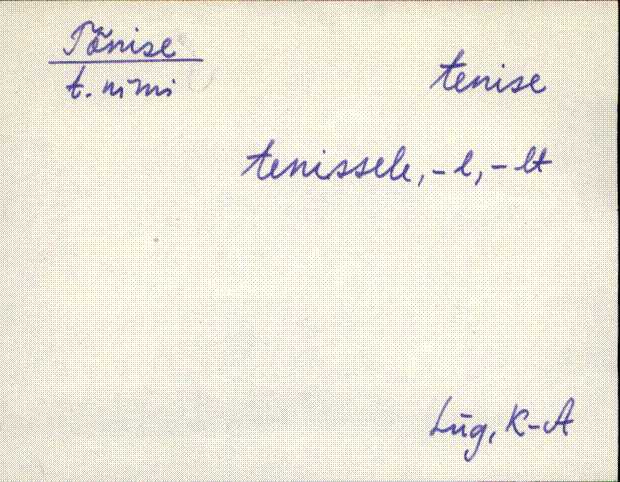 Tõnise
tenise
t. nimi
tenissele, -l, -lt
Lüg, K-A